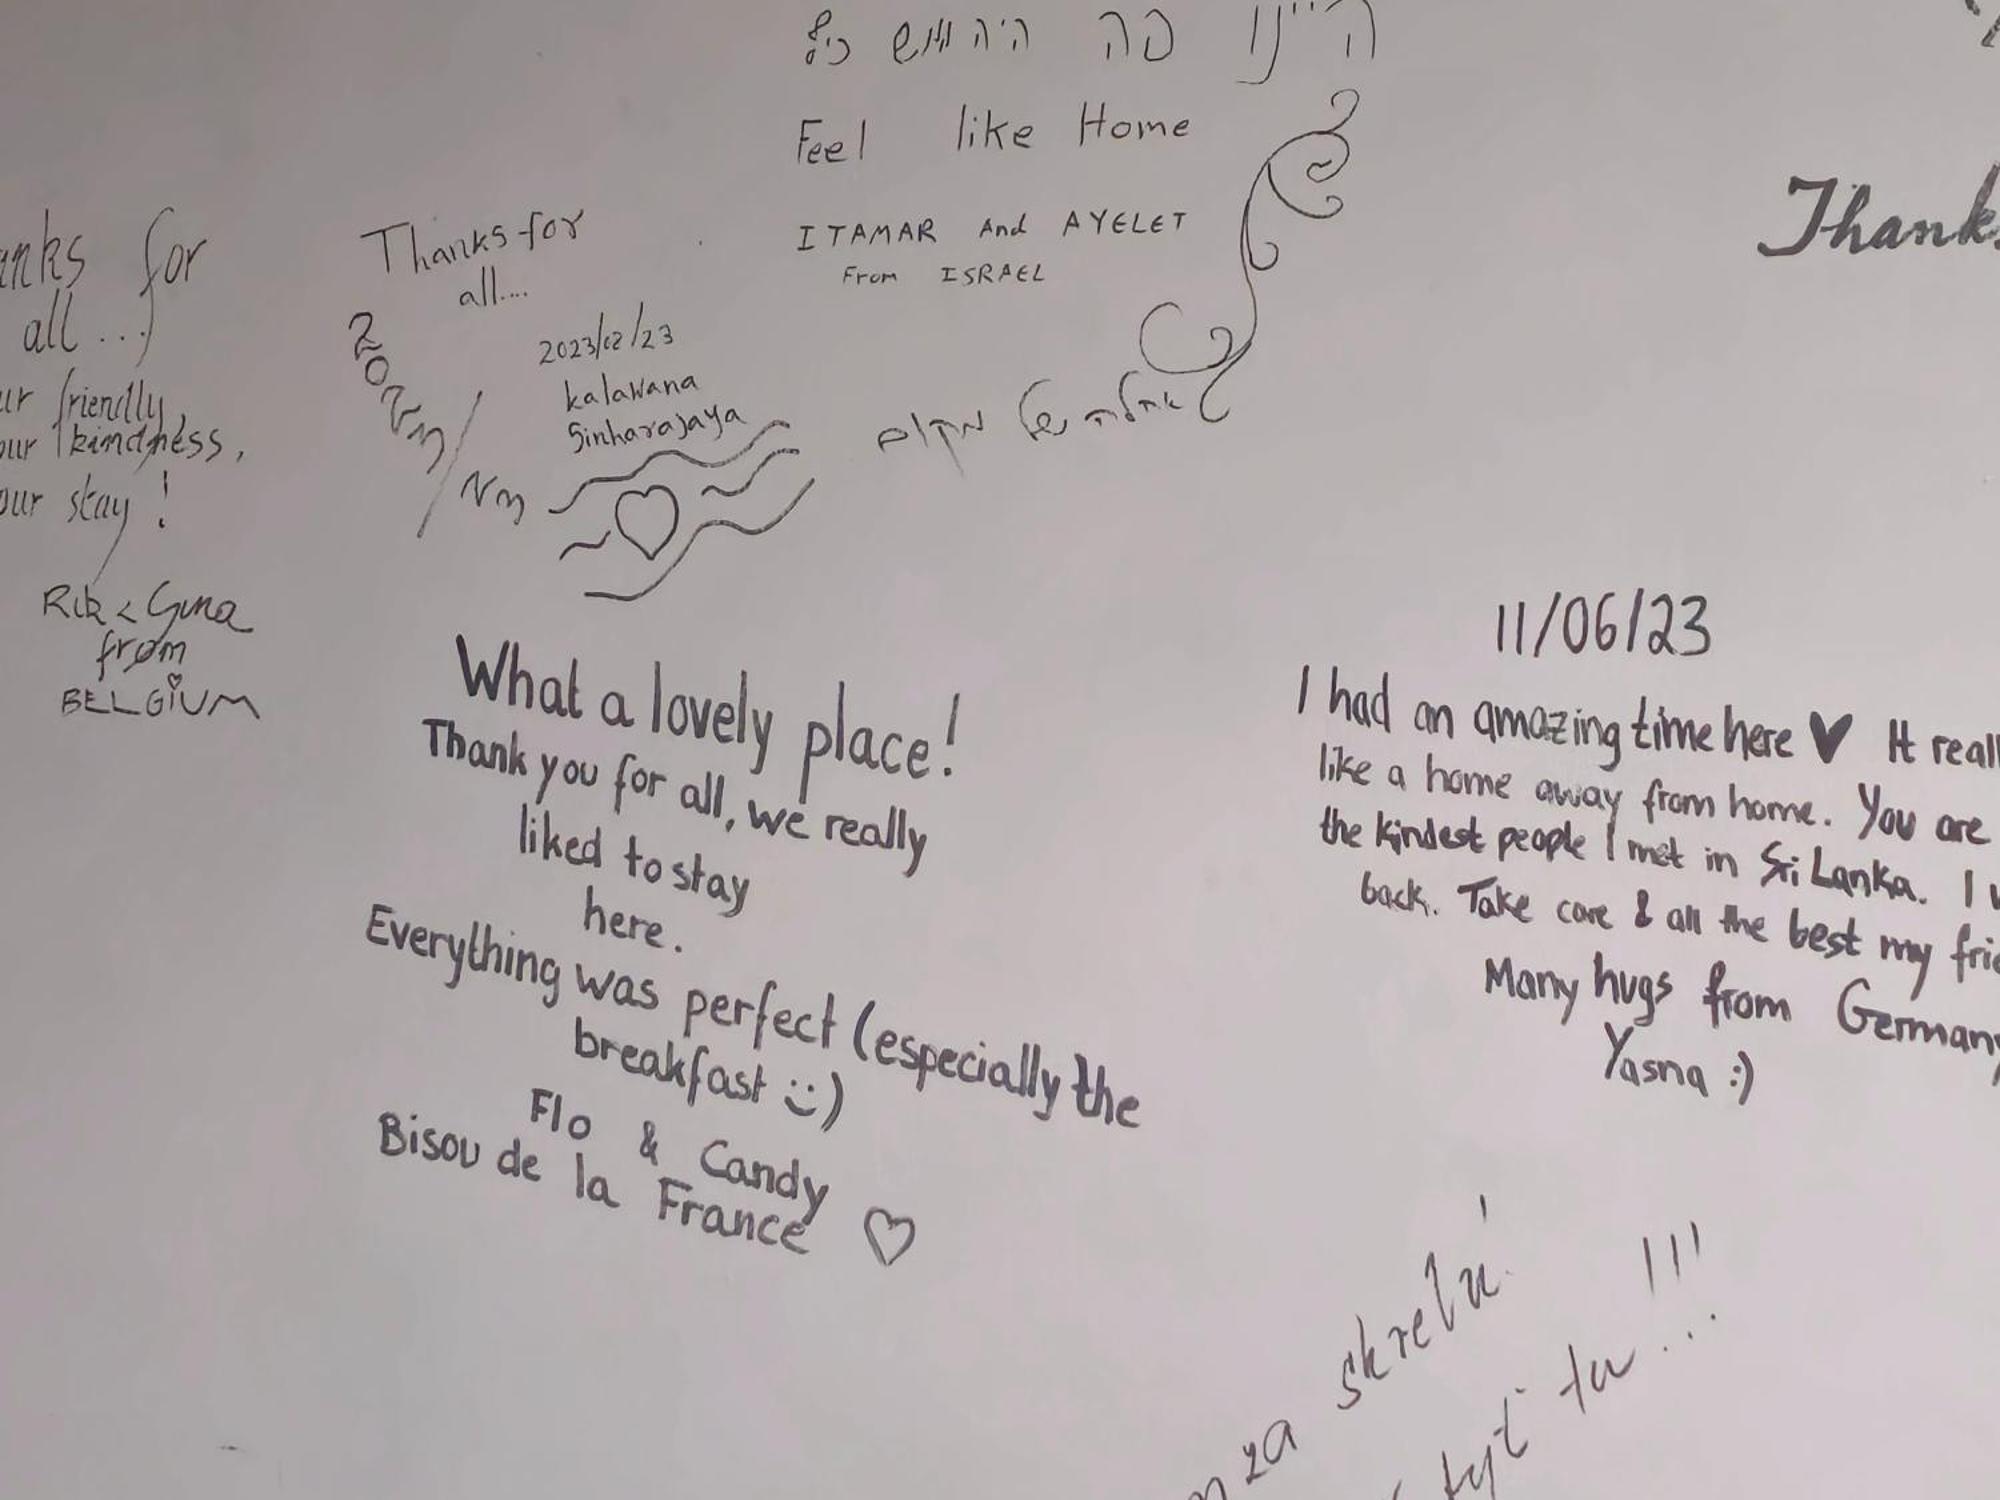 היינו פה היה ממש כיף
Feel like Home
ITAMAR And AYELET
From ISRAEL
אחלה של מקום
Thanks
for
all...
friendly,
kindness,
stay!
Rik & Gina
from
BELGIUM
Thanks for
all....
2023/02/23
kalawana
Sinharajaya
What a lovely place!
Thank you for all, we really
liked to stay
here.
Everything was perfect (especially the
breakfast :))
Flo & Candy
Bisou de la France ♡
11/06/23
I had an amazing time here ♥ It
like a home away from home. You are
the kindest people I met in Sri Lanka. I
back. Take care & all the best my
Many hugs from Germany
Yasna :)
za